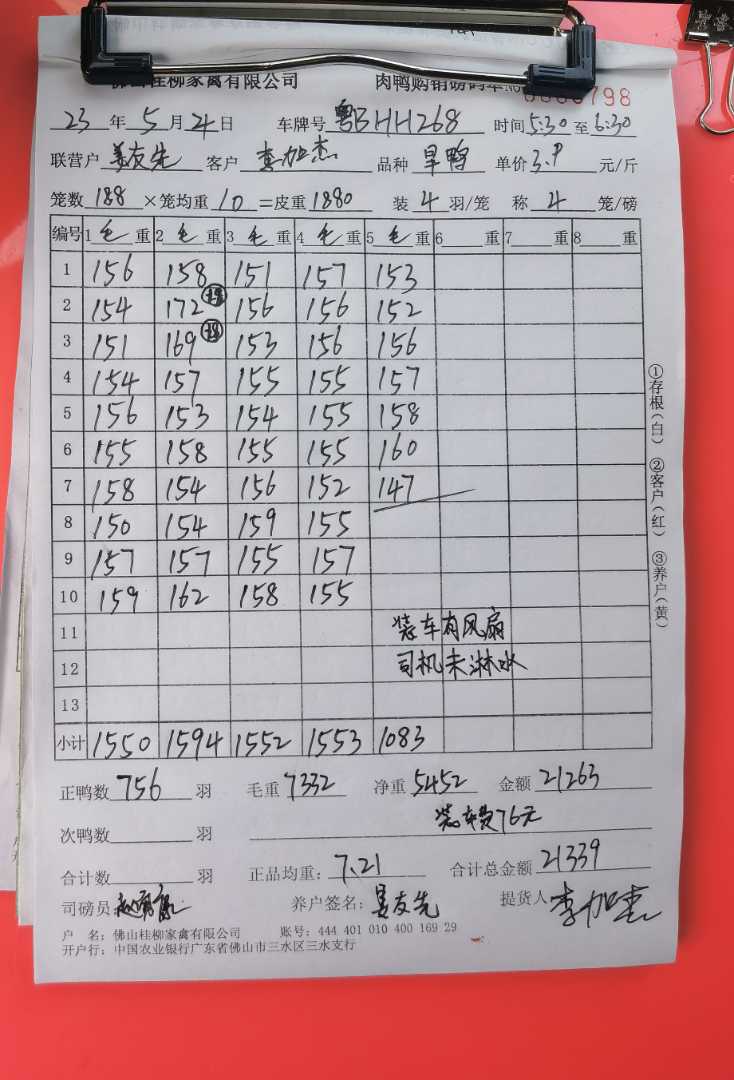 佛山桂柳家禽有限公司 肉鸭购销磅码单 798
23 年 5 月 24 日 车牌号 粤BHH268 时间 5:30 至 6:30
联营户 姜友先 客户 李加杰 品种 旱鸭 单价 3.9 元/斤
笼数 188 ×笼均重 10 =皮重 1880 装 4 羽/笼 称 4 笼/磅
编号 1 毛 重 2 毛 重 3 毛 重 4 毛 重 5 毛 重 6 重 7 重 8 重
1 156 158 151 157 153
2 154 172 156 156 152
3 151 169 153 156 156
4 154 157 155 155 157
5 156 153 154 155 158
6 155 158 155 155 160
7 158 154 156 152 147
8 150 154 159 155
9 157 157 155 157
10 159 162 158 155
11 装车有风扇
12 司机未淋水
13
小计 1550 1594 1552 1553 1083
正鸭数 756 羽 毛重 7332 净重 5452 金额 21263
次鸭数 羽 装车费76元
合计数 羽 正品均重: 7.21 合计总金额 21339
司磅员 养户签名: 姜友先 提货人 李加杰
户 名: 佛山桂柳家禽有限公司 账号: 444 401 010 400 169 29
开户行: 中国农业银行广东省佛山市三水区三水支行
①存根(白) ②客户(红) ③养户(黄)